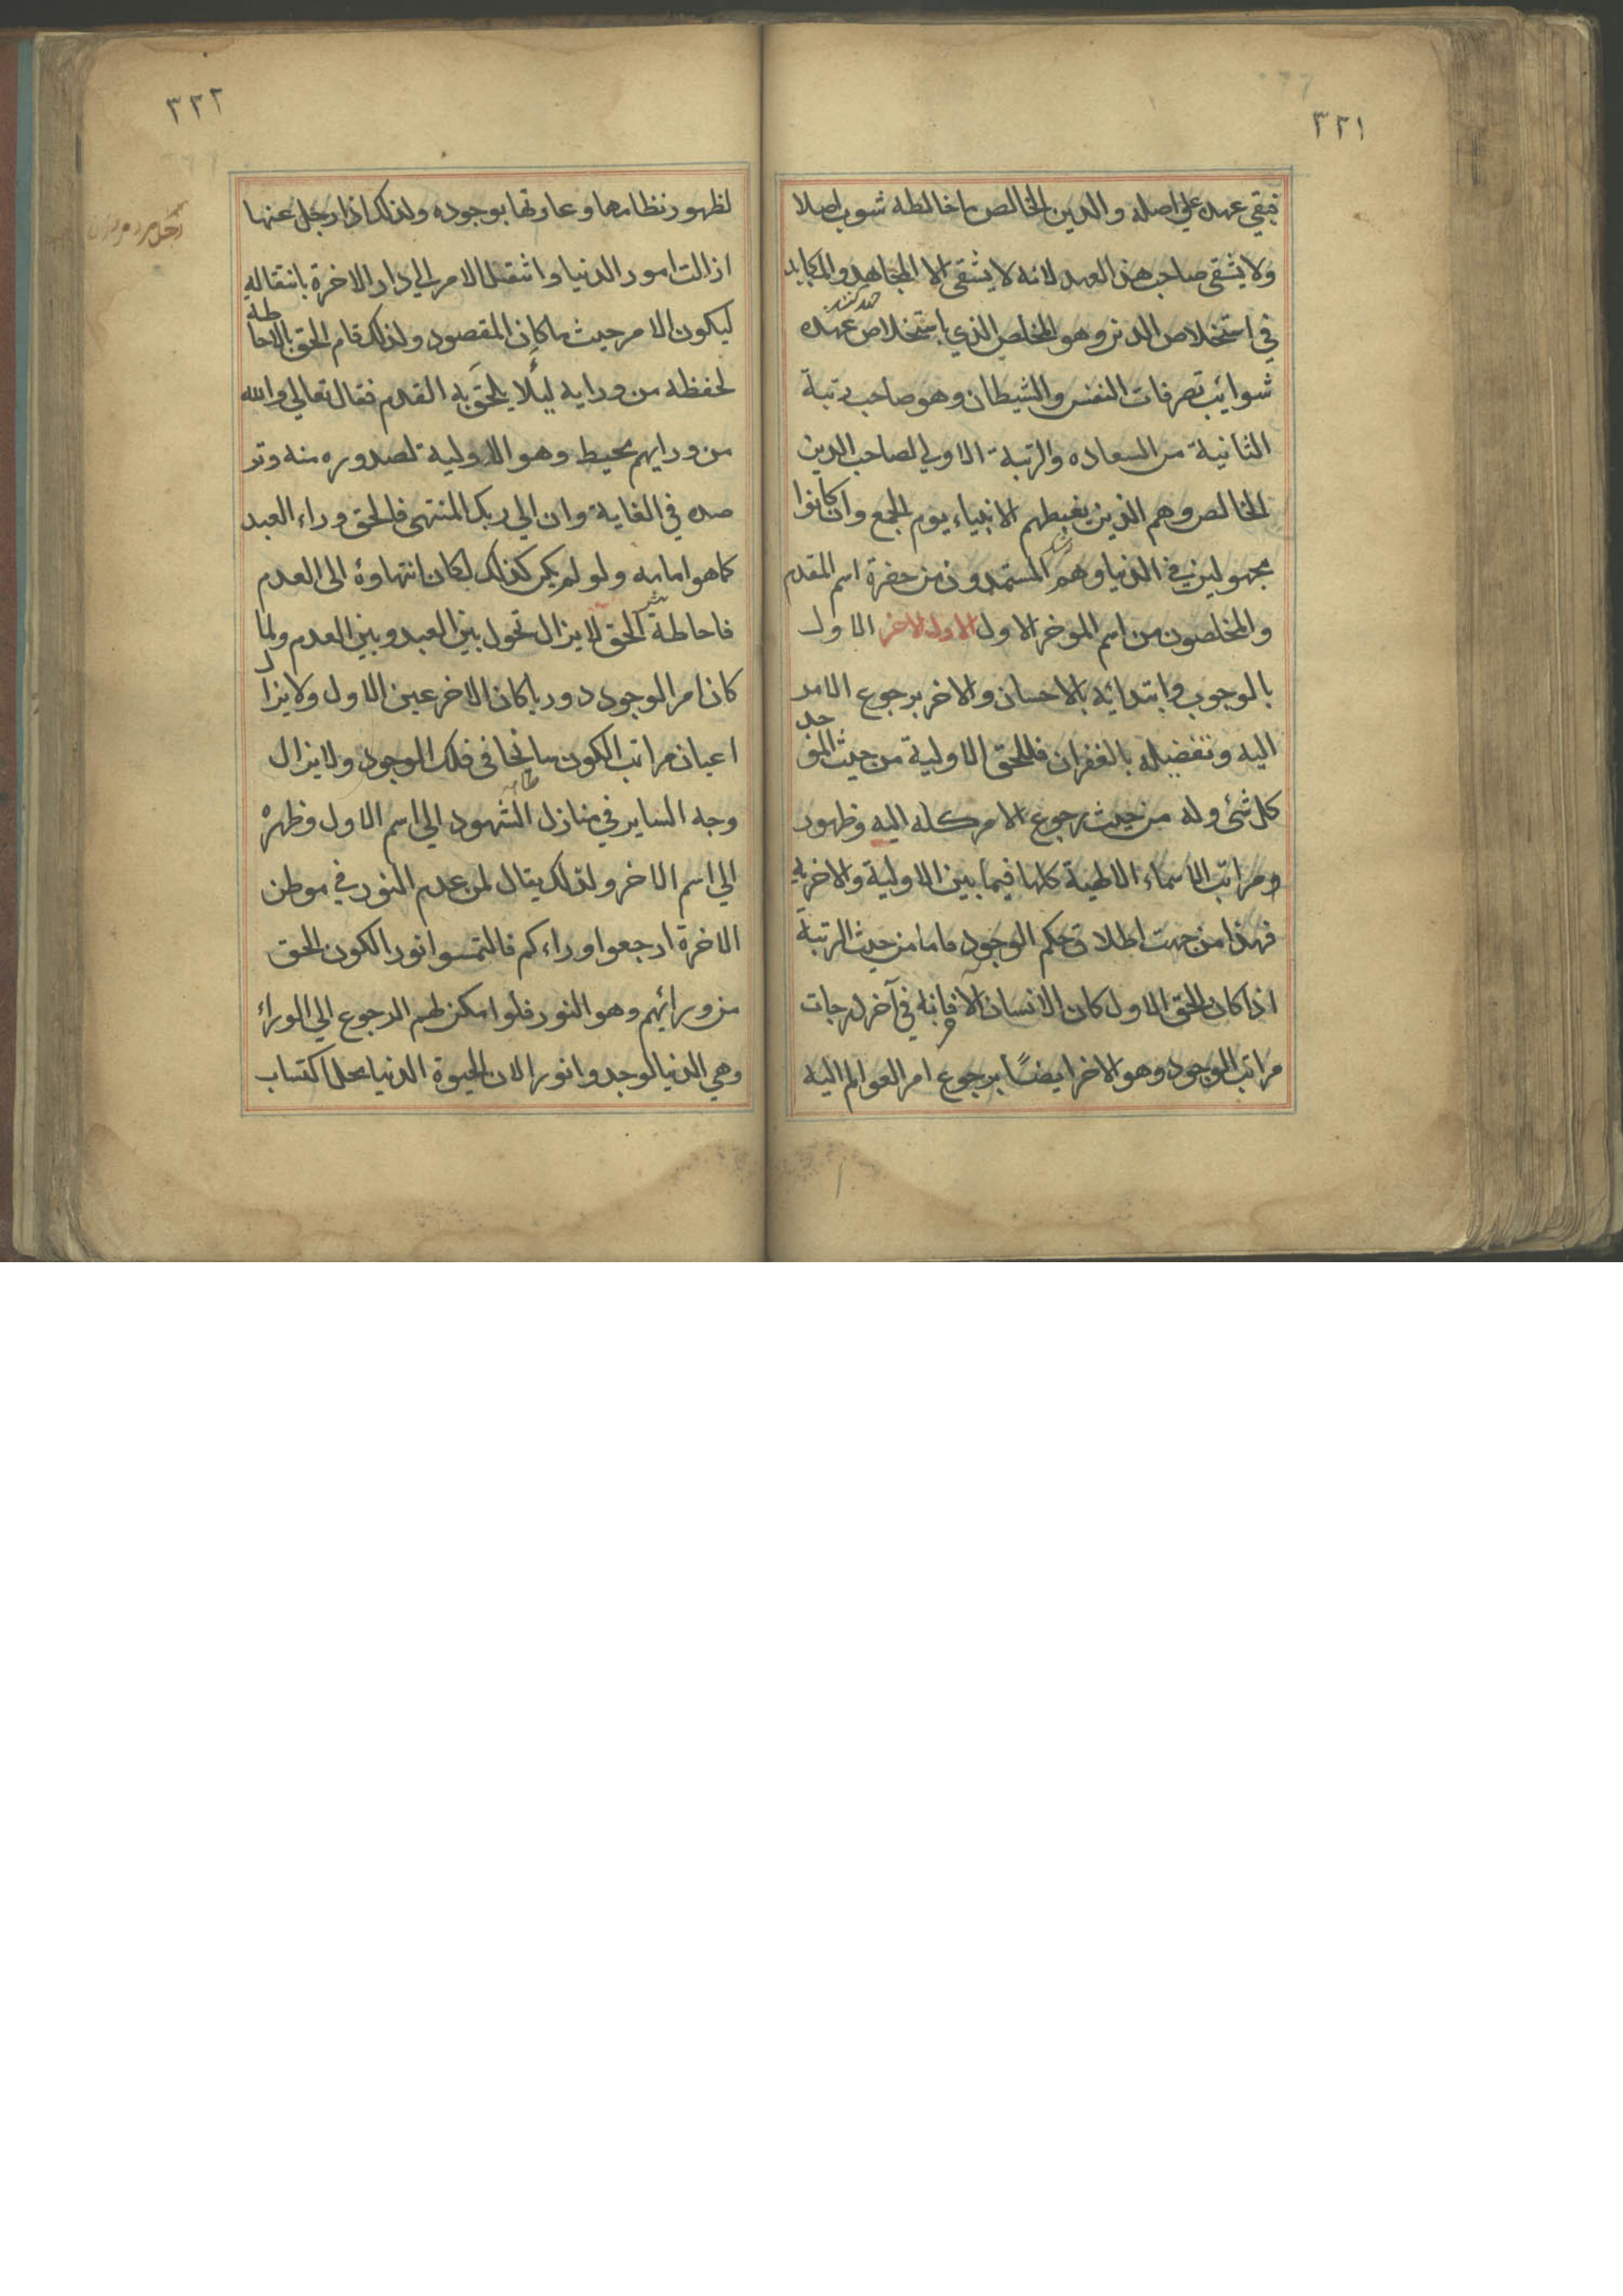 ٣٢١
تبقي عهده علي اصله والدين الخالص ما خالطه شوب اصلا
ولا يشقي صاحب هذ العهد لانه لا يشقي الا المجاهد والمكابد
في استخلاص الدين وهو المخلص الذي استخلاص عهده
شوائب تصرفات النفس والشيطان وهو صاحب رتبة
الثانية من السعاده والرتبة الاولي لصاحب الدين
الخالص وهم الذين يغبطهم الانبياء يوم الجمع وان كانوا
مجهولين في الدنيا وهم المستمدون من حضرة اسم المقدم
والمخلصون من اسم الموخر الاول الاول الاخر الاول
بالوجوب وابتدائه بالاحسان والاخر برجوع الامر
اليه وتفضيله بالغفران فللحق الاولية من حيث الموجد
كل شئ وله من حيث رجوع الامر كله اليه وظهور
ومراتب الاسماء الالهية كلها فيما بين الاولية والاخرية
فهذا من جهت اطلاق حكم الوجود فاما من حيث الرتبة
اذا كان الحق الاول كان الانسان الاخر فانه في آخر درجات
مراتب الوجود وهو الاخر ايضًا برجوع امر العوالم اليه
٣٢٢
لظهور نظامها وعاوتها بوجوده ولذلك اذا رحل عنها
ازالت امور الدنيا وانتقل الامر الي دار الاخرة بانتقاله
ليكون الامر حيث ما كان المقصود ولذلك قام الحق بالاحاطة
لحفظه من ورايه لئلا يلحق به القدم فقال تعالي والله
من ورايهم محيط وهو الاولية لصدوره منه وتر
صده في الغاية وان الي ربك المنتهي فالحق وراء العبد
كما هو امامه ولو لم يكن كذلك لكان انتهاوءُ الي العدم
فاحاطة الحق لا يزال تحول بين العبد وبين العدم ولما
كان امر الوجود دوريا كان الاخر عين الاول ولا يزال
اعيان مراتب الكون سابحا في فلك الوجود ولا يزال
وجه الساير في منازل الشهود الي اسم الاول وظهره
الي اسم الاخر ولذلك يقال لمن عدم النور في موطن
الاخرة ارجعوا وراءكم فالتمسوا نورا لكون الحق
من ورائهم وهو النور فلو امكن لهم الرجوع الي الوراء
وهي الدنيا لوجدوا نورا لان الحيوة الدنيا محل اكتساب